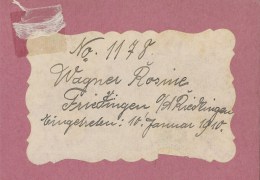 No. 1178
Wagner Rosine
Friedingen O/A Riedlingen
Eingetreten: 10. Januar 1910.